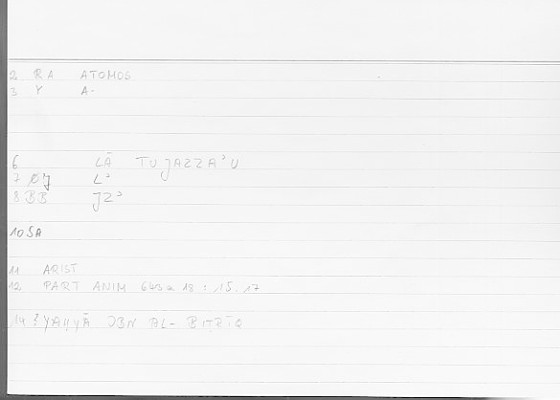 2 RA ATOMOS
3 Y A-
6 LĀ TUJAZZAʾU
7 ØJ Lʾ
8 BB JZʾ
10 SA
11 ARIST
12 PART ANIM 643a 18 : 15.17
14 YAḤYĀ IBN AL-BIṬRĪQ